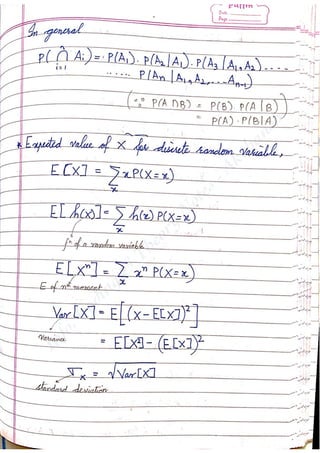 In general
P(⋂ⁿᵢ₌₁ Ai) = P(A₁). P(A₂|A₁). P(A₃|A₁,A₂)....
..... P(An|A₁,A₂,...Aₙ₋₁)
(∵ P(A∩B) = P(B) P(A|B)
= P(A).P(B|A))
* Expected value of X for discrete random variable,
E[X] = ∑ₓ x P(X=x)
E[h(x)] = ∑ₓ h(x) P(X=x)
fⁿ of a random variable
E[Xⁿ] = ∑ₓ xⁿ P(X=x)
E of nᵗʰ moment
Var[X] = E[(X-E[X])²]
Variance
= E[X²] - (E[X])²
σₓ = √Var[X]
standard deviation